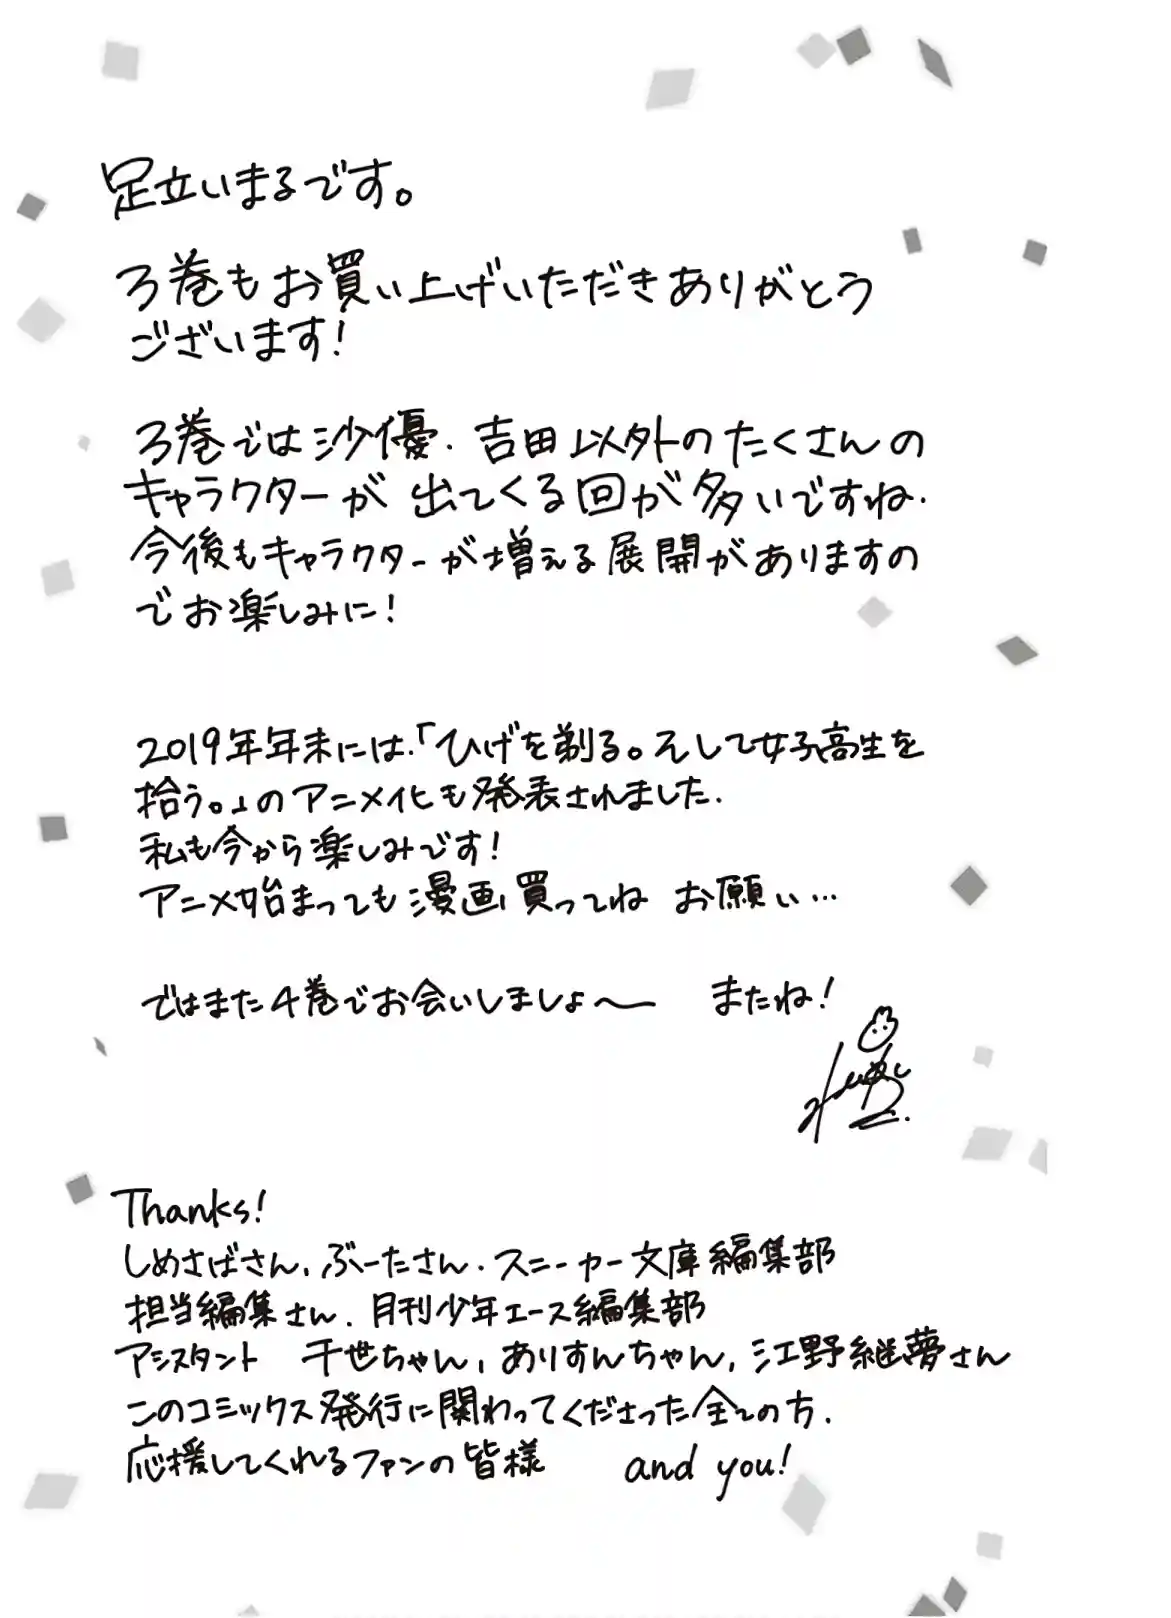 足立いまるです。
3巻もお買い上げいただきありがとう
ございます!
3巻では沙優.吉田以外のたくさんの
キャラクターが出てくる回が多いですね.
今後もキャラクターが増える展開がありますの
でお楽しみに!
2019年年末には.「ひげを剃る。そして女子高生を
拾う。」のアニメ化も発表されました.
私も今から楽しみです!
アニメ始まっても漫画買ってね お願い…
ではまた4巻でお会いしましょ〜 またね!
Thanks!
しめさばさん,ぶーたさん.スニーカー文庫編集部
担当編集さん.月刊少年エース編集部
アシスタント 千世ちゃん,ありすんちゃん,江野継夢さん
このコミックス発行に関わってくださった全ての方.
応援してくれるファンの皆様 and you!